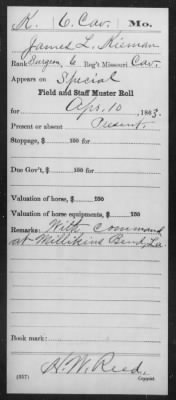 K. 6 Cav. Mo.
James L. Kiernan
Rank Surgeon, 6 Reg't Missouri Cav.
Appears on Special
Field and Staff Muster Roll
for Apr. 10, 1863.
Present or absent Present.
Stoppage, $ 100 for
Due Gov't, $ 100 for
Valuation of horse, $ 100
Valuation of horse equipments, $ 100
Remarks: With command
at Millikins Bend, La
Book mark:
H. W. Reed
(857) Copyist.